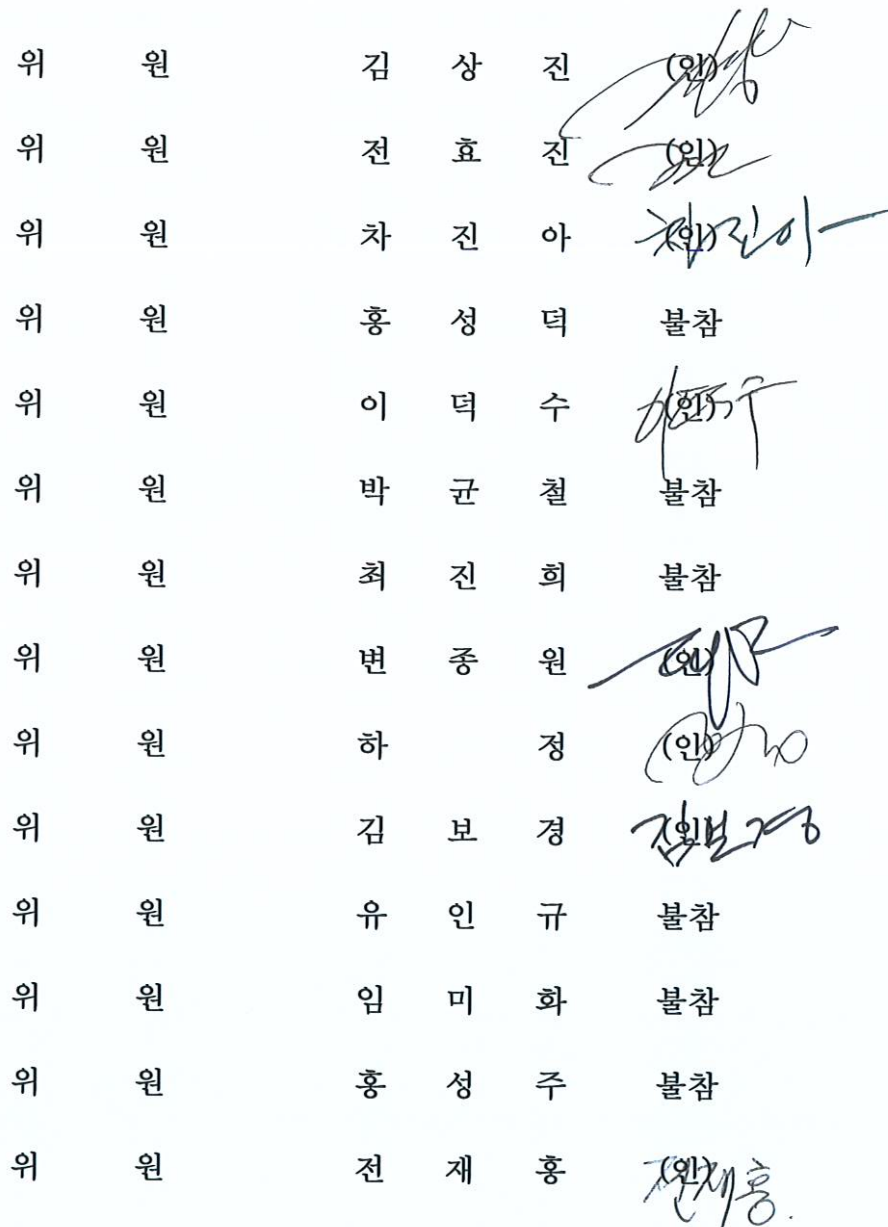 위 원 김 상 진 (인)
위 원 전 효 진 (인)
위 원 차 진 아 (인) 차진아
위 원 홍 성 덕 불참
위 원 이 덕 수 (인)
위 원 박 균 철 불참
위 원 최 진 희 불참
위 원 변 종 원 (인)
위 원 하 정 (인)
위 원 김 보 경 (인) 김보경
위 원 유 인 규 불참
위 원 임 미 화 불참
위 원 홍 성 주 불참
위 원 전 재 홍 (인) 전재홍